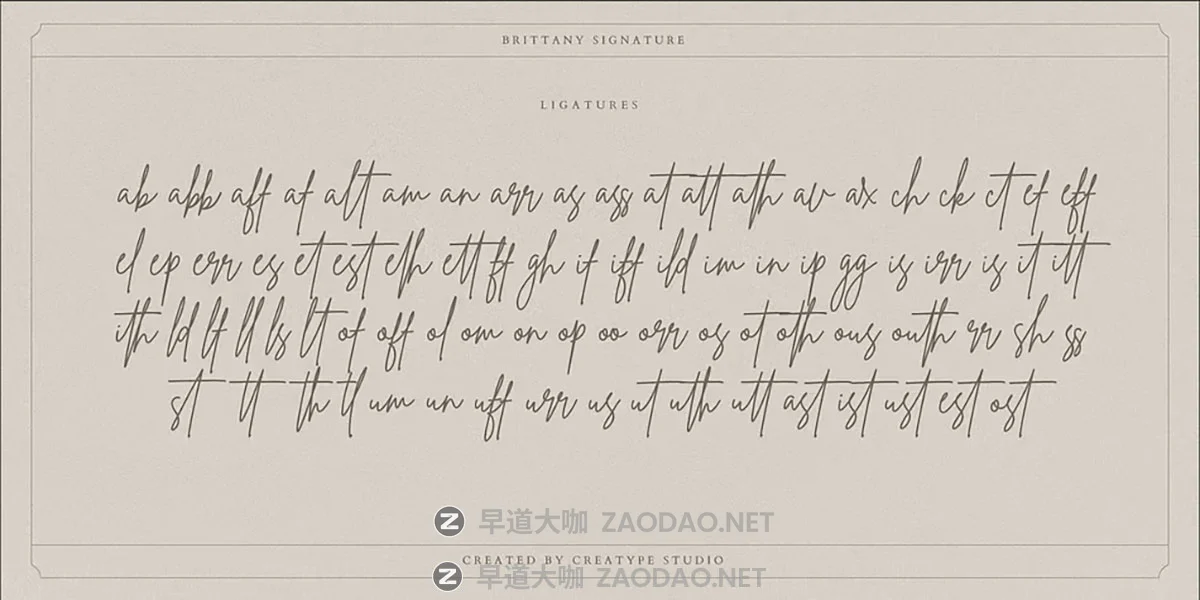 BRITTANY SIGNATURE
LIGATURES
ab abb aff af alt am an arr as ass at att ath av ax ch ck ct ef eff
el ep err es et est eth ett ff gh if iff ild im in ip gg is irr is it itt
ith ld lf ll ls lt of off ol om on op oo orr os ot oth ous outh rr sh ss
st tt th tl um un uff urr us ut uth utt ast ist ust est ost
早道大咖 ZAODAO.NET
CREATED BY CREATYPE STUDIO
早道大咖 ZAODAO.NET